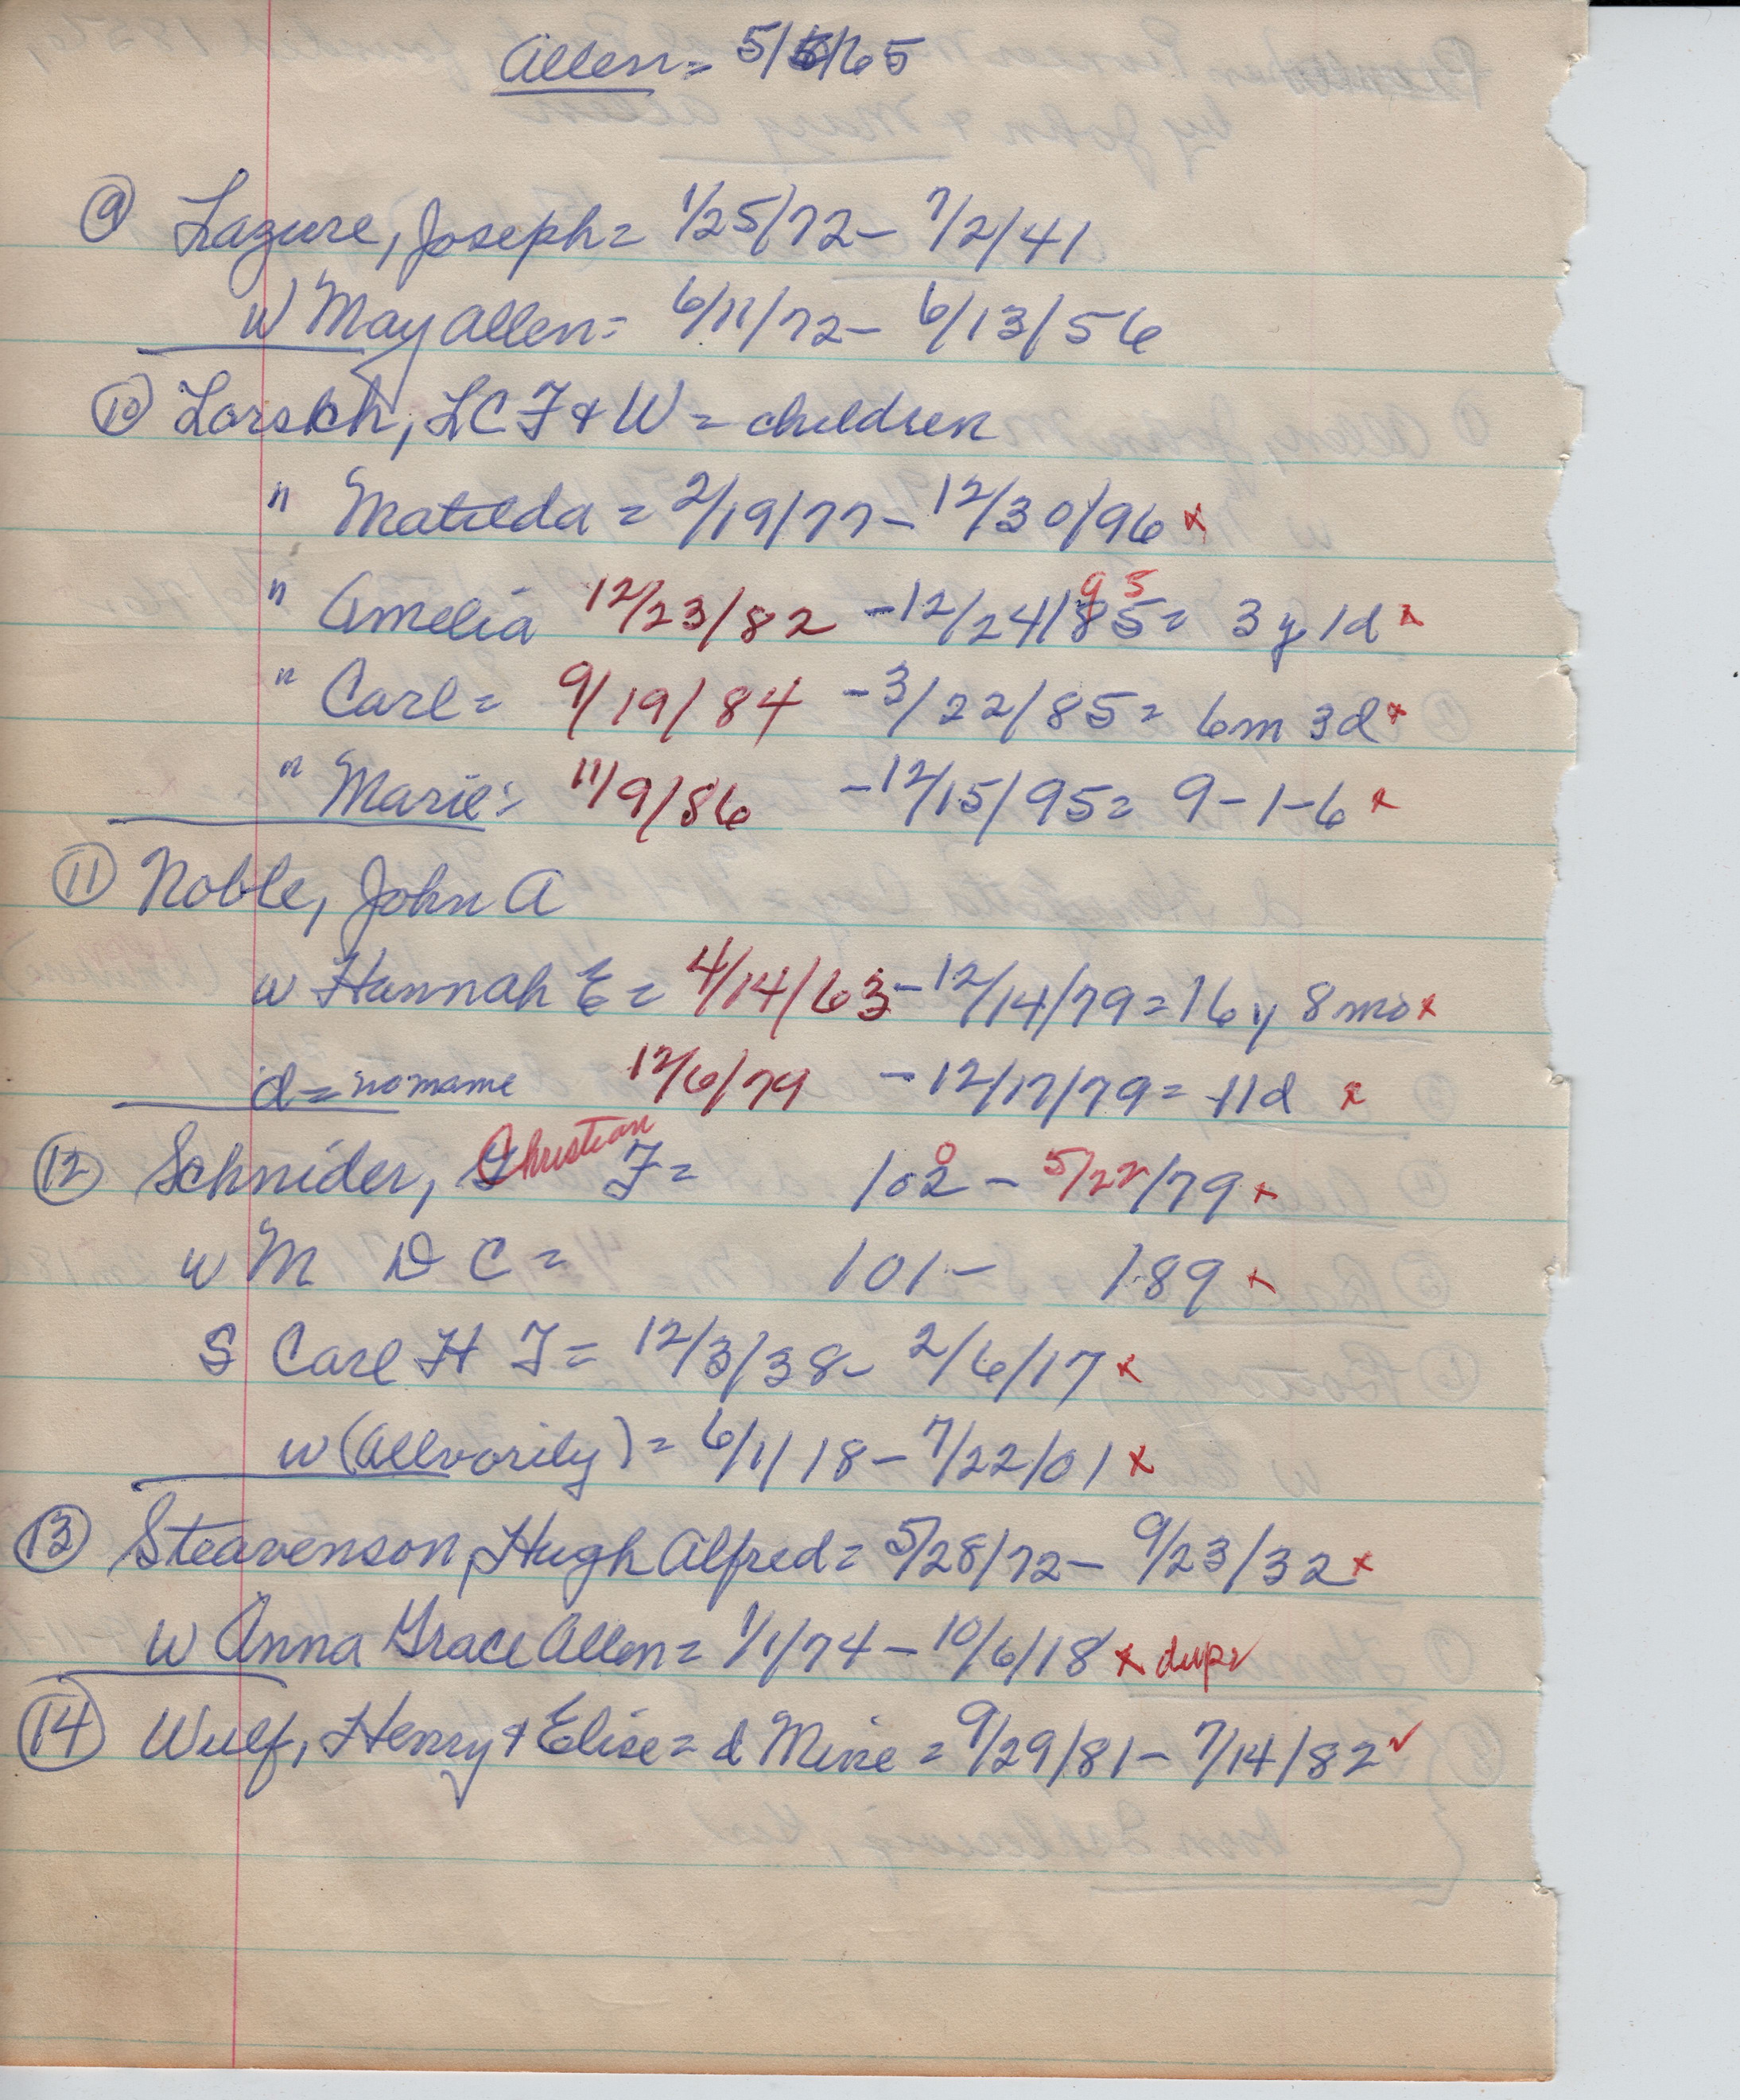 Allen = 5/5/65
9 Lazure, Joseph = 1/25/72 - 7/2/41
W May Allen = 6/11/72 - 6/13/56
10 Lorskh, LCF & W = children
" Matilda = 2/19/77 - 12/30/96 x
" Amelia 12/23/82 - 12/24/85 = 3 y 1d x
95
" Carl = 9/19/84 - 3/22/85 = 6m 3d x
" Marie = 11/9/86 - 12/15/95 = 9-1-6 x
11 Noble, John A
w Hannah E = 4/14/63 - 12/14/79 = 16 y 8 mo x
d = no name 12/6/79 - 12/17/79 = 11d x
12 Schnider, Christian F = 102 - 5/22/79 x
0
w M D C = 101 - 189 x
S Carl H F = 12/3/38 - 2/6/17 x
w (Allvorily) = 6/1/18 - 7/22/01 x
13 Steavenson, Hugh Alfred = 5/28/72 - 9/23/32 x
W Anna Grace Allen = 1/1/74 - 10/6/18 x dupe
14 Wulf, Henry & Elise = d Mine = 9/29/81 - 7/14/82 ✓